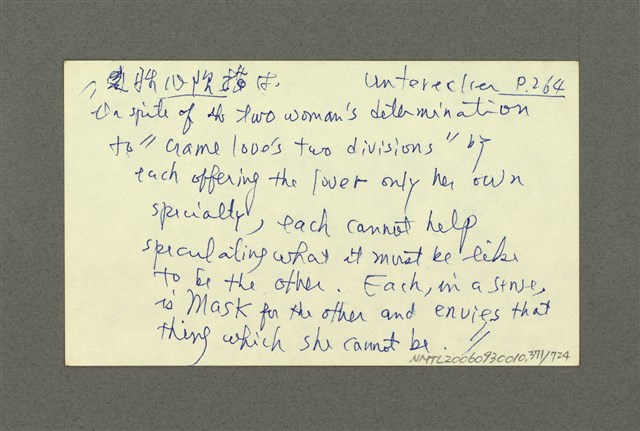 Unterecker P.264
In spite of the two woman's determination
to "name love's two divisions" by
each offering the lover only her own
specialty, each cannot help
speculating what it must be like
to be the other. Each, in a sense,
is Mask for the other and envies that
thing which she cannot be."
NMTL20060930010,371/724